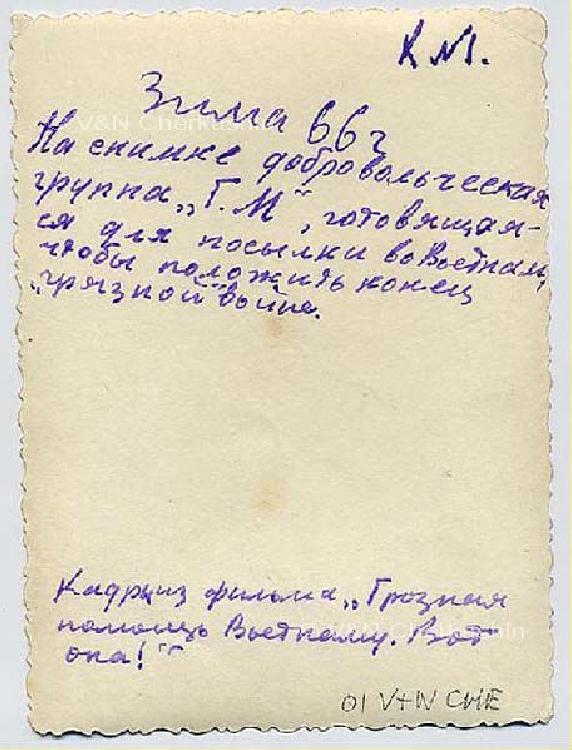 К №1.
Зима 66 г
На снимке добровольческая
группа „Г.М“, готовящая-
ся для посылки во Вьетнам,
чтобы положить конец
„грязной“ войне.
Кадр из фильма „Грозная
помощь Вьетнаму. Вот
она!“
01 V+N CHE
V&N Cherkashin
V&N Cherkashin